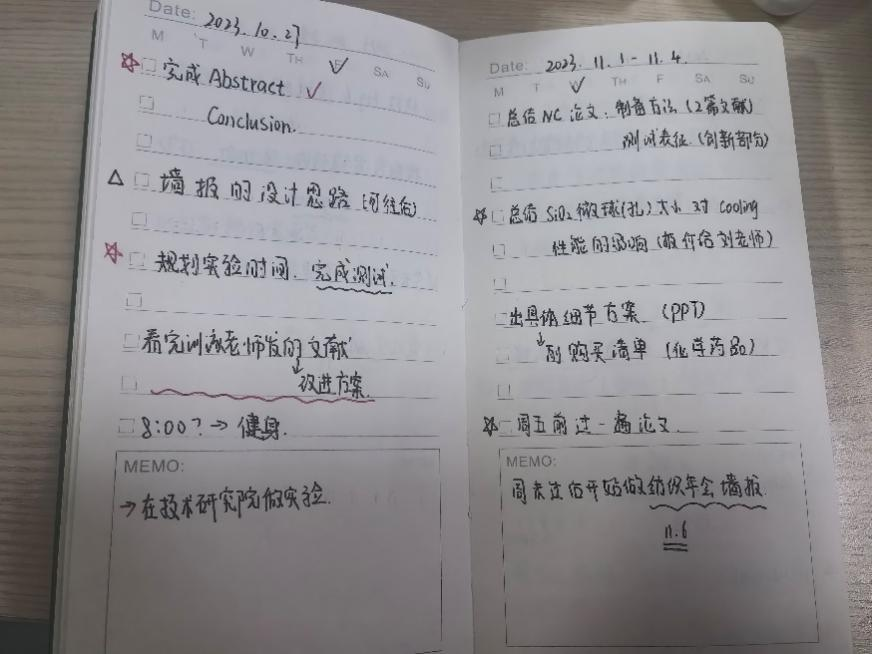 Date: 2023.10.27
M T W TH F SA SU
完成 Abstract ✓
Conclusion.
墙报的设计思路 (可往后)
规划实验时间. 完成测试.
看完训练老师发的文献
↓
改进方案.
8:00? → 健身.
MEMO:
→ 在技术研究院做实验.
Date: 2023. 11. 1 - 11. 4.
M T W TH F SA SU
总结 NC 论文. 制备方法 (2篇文献)
测试表征. (创新部分)
总结 SiO₂ 微球(孔) 大小 对 Cooling
性能的影响 (报价给刘老师)
出具体细节方案 (PPT)
↓
列购买清单 (化学药品)
周五前过一遍论文.
MEMO:
周末过后开始做纺织年会墙报.
11.6